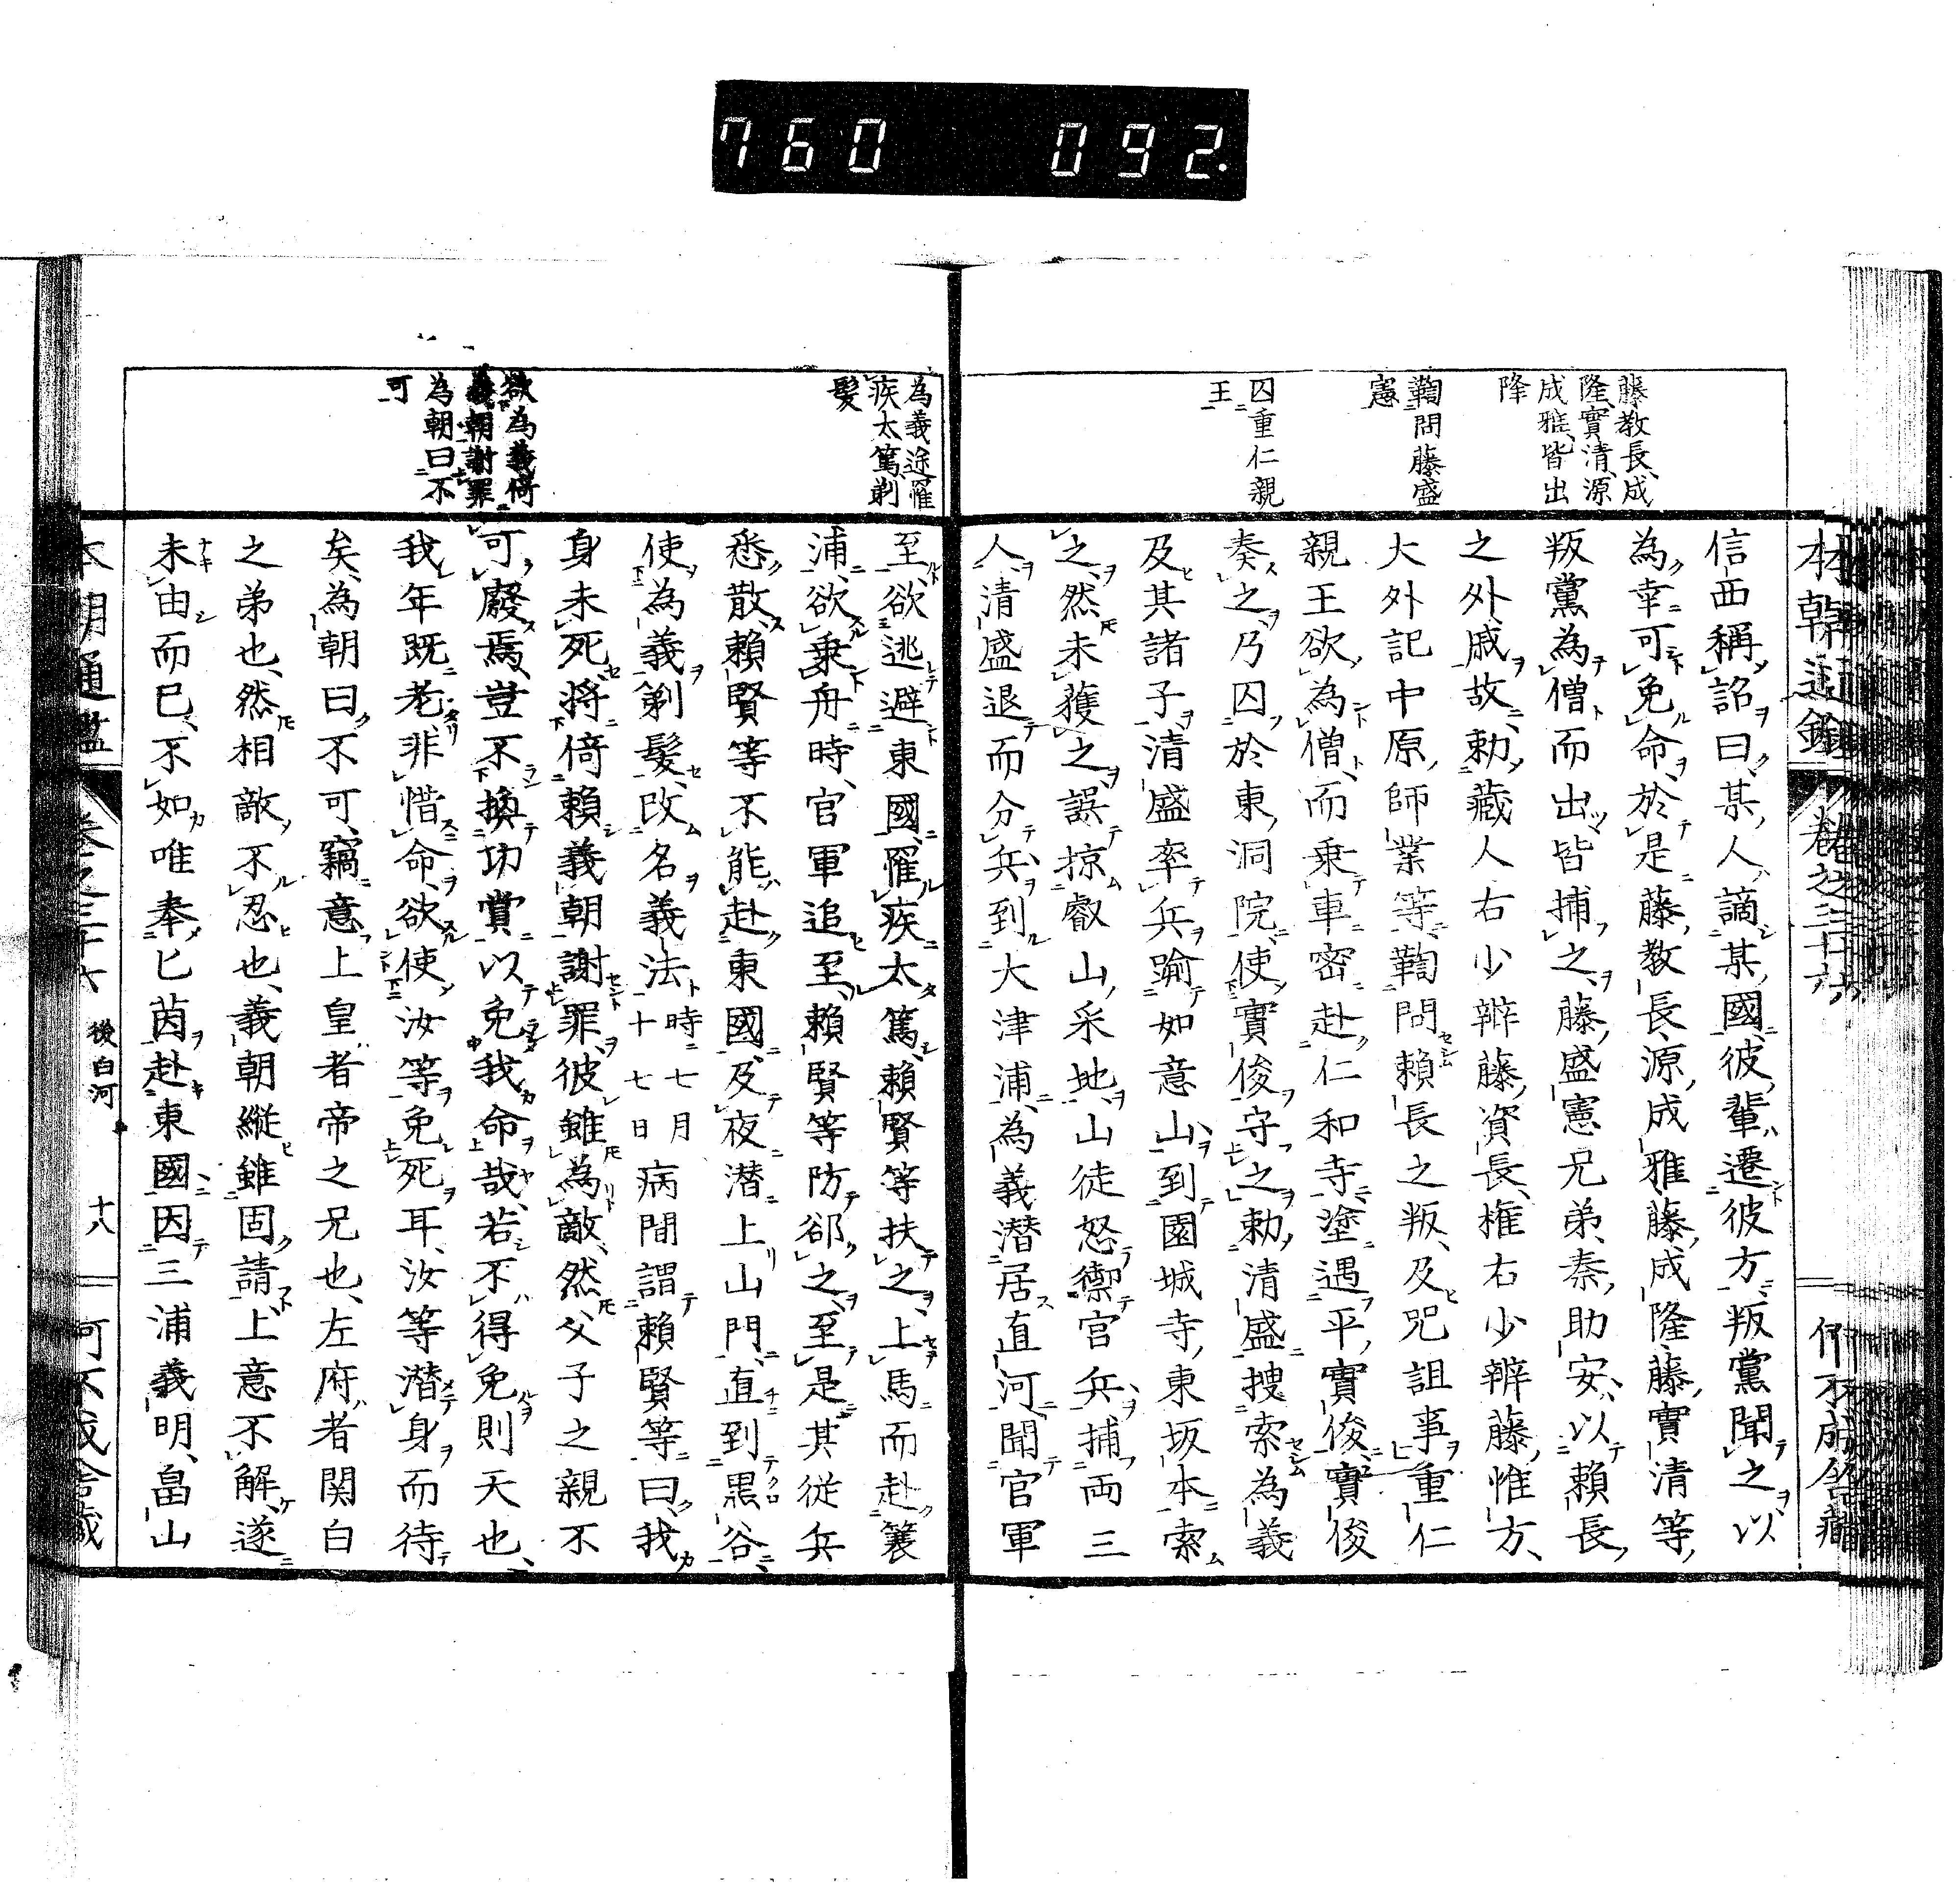 760 092.
藤教長、成
隆、實清、源
成雅、皆出
降
鞫問藤盛
憲
囚重仁親
王
信西稱詔曰、某人謫某國、彼輩遷彼方、叛黨聞之以
為幸可免命、於是藤教長、源成雅、藤成隆、藤實清等、
叛黨為僧而出皆捕之、藤盛憲兄弟、秦助安、以賴長
之外戚故、勅藏人右少辨藤資長、権右少辨藤惟方、
大外記中原師業等、鞫問賴長之叛、及咒詛事、重仁
親王欲為僧、而乗車密赴仁和寺、塗遇平實俊、實俊
奏之、乃囚於東洞院、使實俊守之、勅清盛捜索為義
及其諸子、清盛率兵踰如意山、到園城寺、東坂本索
之、然未獲之、誤掠叡山采地、山徒怒禦官兵、捕両三
人、清盛退而分兵、到大津浦、為義潜居直河、聞官軍
為義途罹
疾太篤剃
髪
欲為義倚
義朝謝罪
為朝曰不
可
至、欲逃避東國、罹疾太篤、賴賢等扶之、上馬而赴簑
浦、欲乗舟時、官軍追至、賴賢等防郤之、至是其従兵
悉散、賴賢等不能赴東國、及夜潜上山門、直到黒谷、
使為義剃髪、改名義法 時七月十七日 病間謂賴賢等曰、我
身未死、将倚賴義朝謝罪、彼雖為敵、然父子之親不
可廢焉、豈不換功賞以免我命哉、若不得免則天也、
我年既老、非惜命、欲使汝等免死耳、汝等潜身而待
矣、為朝曰、不可、竊意上皇者帝之兄也、左府者関白
之弟也、然相敵、不忍也、義朝縦雖固請、上意不解、遂
未由而已、不如唯奉匕茵赴東國、因三浦義明、畠山
後白河
十八